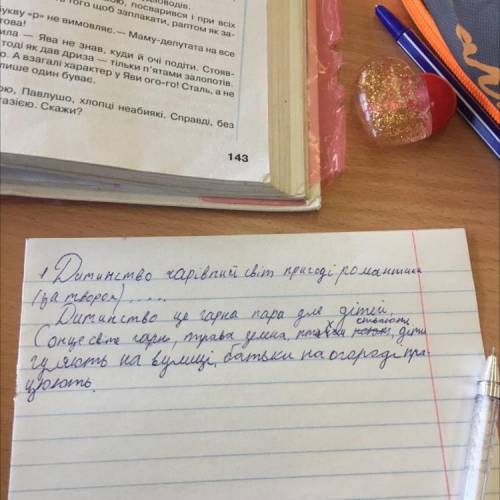 діяловодів.
ою, посварився і при всіх
ть того щоб заплакати, раптом як за-
това!
букву «р» не вимовляє.— Маму-депутата на все
ила — Ява не знав, куди й очі подіти. Стояв-
тоді як дав дриза — тільки п'ятами залопотів.
о. А взагалі характер у Яви ого-го! Сталь, а не
лише один буває.
ою, Павлушо, хлопці неабиякі. Справді, без
тазією. Скажи?
143
1 Дитинство чарівний світ пригоді романтики
(за твором).....
Дитинство це гарна пара для дітей.
Сонце світе гарно, трава зелена, пташки співають, діти
гуляють на вулиці, батьки на огороді пра-
цюють.